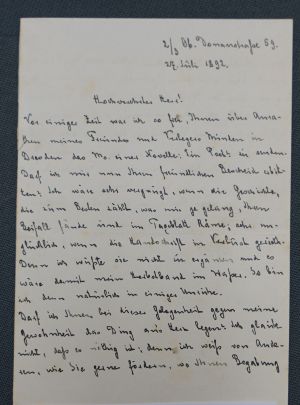 2/3 Ob. Donaustraße 59.
27. Juli 1892.
Hochverehrter Herr!
Vor einiger Zeit war ich so frei Ihnen über
meines Freundes und Verlegers Minden in
Dresden das Mo. einer Novelle: Ein Poet zu senden.
Darf ich mir nun Ihren freundlichen Bescheid erbit-
ten? Ich wäre sehr vergnügt, wenn die Geschichte,
die zum Besten zählt, was mir je gelang, Ihren
Beifall fände und im Tageblatt Räume; sehr un-
glücklich, wenn die Handschrift in Verlust geriete.
Denn ich wüßte sie nicht zu ergänzen und es
wäre damit mein im So bin
ich denn natürlich in einiger Unruhe.
Darf ich Ihnen bei dieser Gelegenheit gegen meine
Gewohnheit das Ding ans Herz legen? Ich glaube
nicht, daß es nöthig ist; denn ich weiß von
wie Sie gerne fördern, wo Ihnen Begabung